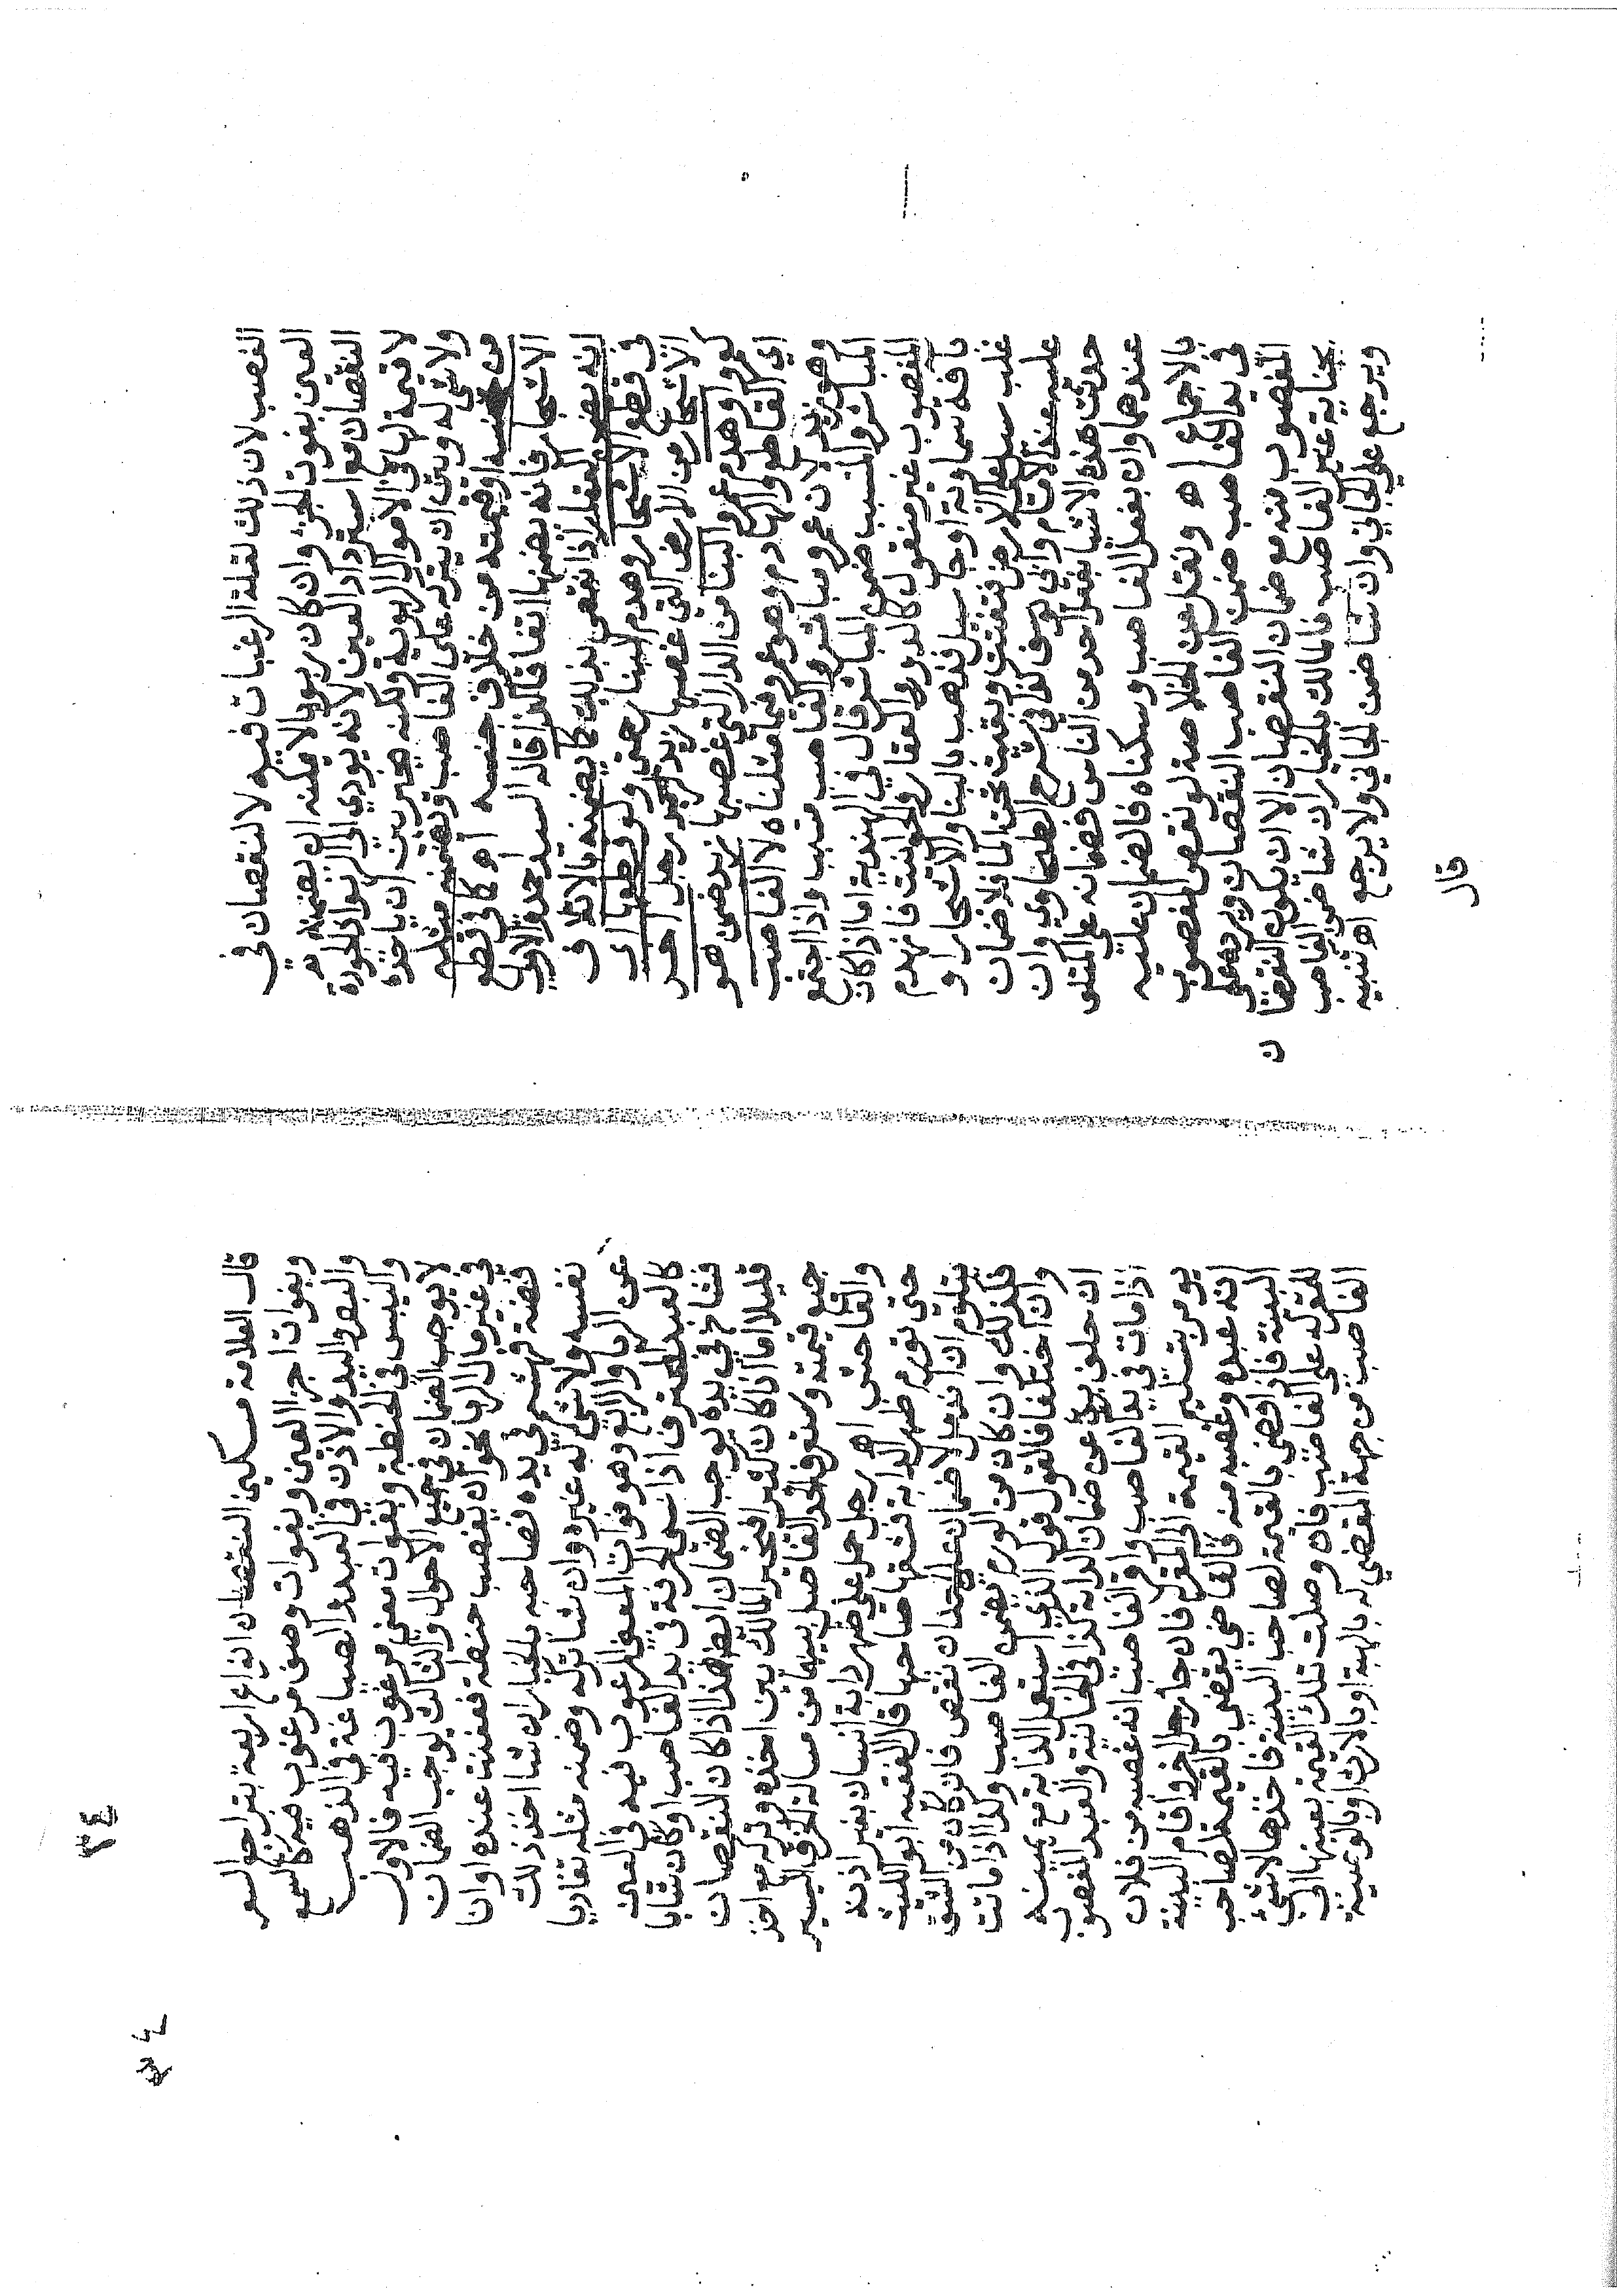 الغصب لان ذلك لقلة الرغبات فيه لا لنقصان في
العين بفوت الجزء وان كان ربويا لا يمكنه ان يضمنه
النقصان مع استرداد العين لانه يودي الى الربوا اذ الجودة
لا قيمة لها في الاموال الربوية ولكنه يخير بين ان ياخذه
ولا شي له وبين ان يتركه على الغاصب وتضمنه مثله
من جنسه او قيمته من خلاف جنسه اه كما في قطع
الاشجار فانه يضمنها اتفاقا كذا قاله السيد احمد والاولى
انه يضمن العقار اذا نقص بذلك كما يضمنه بالاتلاف
في قطع الاشجار وهدم البنا حتى ولو قطعها اي
الاشجار من الارض التي غصبها زيد رجل اخر
كعمرو او هدم عمرو البنا من الدار التي غصبها زيد ضمن هو
اي القاطع والهادم وهو عمرو فيما مثلناه لا الغاصب
وهو زيد لان عمرو مباشر والغاصب متسبب واذا اجتمع
المباشر والمتسبب ضمن المباشر قال في الهندية اما اذا كان
المغصوب غير منقول كالدور والعقار والحوانيت فانهدم
بافة سماوية او جا سيل فذهب بالبنا والاشجار او
غلب سيل على الارض فنقيت وبقيت تحت الما فلا ضمان
عليه عند الامام وابي يوسف كذا في شرح الطحاوي وان
حدثت هذه الاشيا بفعل احد من الناس فضمانه على المتلف
عندهما وان بفعل الغاصب او سكناه فالضمان عليه
بالاجماع اه ونقل عن الخلاصة لو نقص المغصوب
في يد الغاصب ضمن الغاصب النقصان ويرده على
المغصوب منه مع ضمان النقصان الا ان يكون النقصان
بجناية غير الغاصب فالمالك بالخيار ان شا ضمن الغاصب
ويرجع على الجاني وان شا ضمن الجاني ولا يرجع اه تنبيه
قال
٣٤
٣٤
قال العلامة مسكين النقصان انواع اربعة بتراجع السعر
وبفوات اجزا العين وبفوات وصف مرغوب فيه كالسمع
والبصر واليد والاذن في العبد والصياغة في الذهب
واليبس في الحنطة وبفوات معنى مرغوب فيه فالاول
لا يوجب الضمان في جميع الاحوال والثالث يوجب الضمان
في غير مال الربا نحو ان يغصب حنطة فعفنت عنده او انا
فضة فهشم في يده فصاحبه بالخيار ان شا اخذ ذلك
نفسه ولا شي له غيره وان شا تركه وضمنه مثله تفاديا
عن الربا والرابع وهو فوات المعنى المرغوب فيه في العين
كالعبد المحترف اذا نسي الحرفة في يد الغاصب او كان شابا
فشاخ في يده يوجب الضمان ايضا هذا اذا كان النقصان
قليلا اما اذا كان كثيرا فيخير المالك بين اخذه وتركه مع اخذ
جميع قيمته وستعرف الحد الفاصل بينهما من مسالة الخرق اليسير
والفاحش اه رجل حمل على ظهر دابة انسان بغير اذنه
حتى تورم ظهر الدابة فشقها صاحبها قال الفقيه ابو الليث
يتلوم ان اندمل لا ضمان على الغاصب وان نقص فان كان من الشق
فكذلك وان كان من الورم يضمن الغاصب وكذا اذا ماتت
وان اختلفا فالقول قول الذي استعمل الدابة مع يمينه
ان حلف بري عن ضمان الدابة كذا في الخانية والعبد المغصوب
اذا مات في يد الغاصب واقر الغاصب انه غصبه من فلان
يومر بتسليم القيمة الى المقر له فان جا رجل اخر واقام البينة
انه عبده وغصبه منه فالقاضي يقضي بالقيمة لصاحب
البينة فاذا قضى بالقيمة لصاحب البينة فاخذها لا شي
للمقر له على الغاصب فان وصلت تلك القيمة بعينها الى
الغاصب من جهة المقضي له بالهبة او بالارث او بالوصية